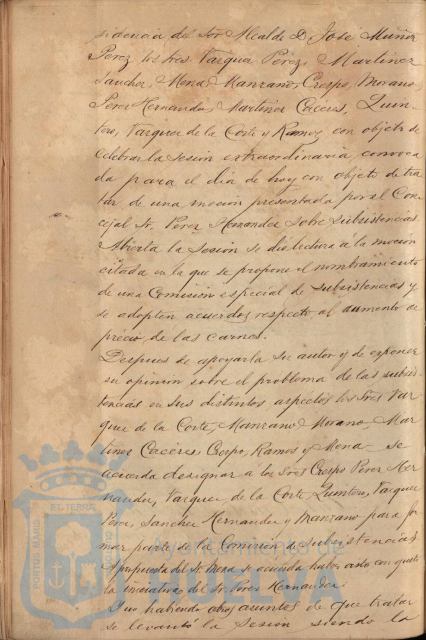 sidencia del Sor Alcalde D. José Muñoz
Perez los Sres Vazquez Perez, Martinez
Sanchez, Mena, Manzano, Crespo, Morano,
Perez Hernandez, Martinez Cáceres, Quin-
tero, Vazquez de la Corte y Ramos, con objeto de
celebrar la sesión extraordinaria convoca-
da para el dia de hoy con objeto de tra-
tar de una moción presentada por el Con-
cejal Sr. Perez Hernandez sobre subsistencias
Abierta la sesión se dió lectura á la moción
citada en la que se propone el nombramiento
de una Comisión especial de subsistencias y
se adopten acuerdos respecto al aumento de
precio de las carnes.
Despues de apoyarla su autor y de exponer
su opinión sobre el problema de las subsis-
tencias en sus distintos aspectos los Sres Vaz-
quez de la Corte, Manzano, Morano, Mar-
tinez Cáceres, Crespo, Ramos y Mena se
acuerda designar a los Sres Crespo, Perez Her-
nandez, Vazquez de la Corte, Quintero, Vazquez
Perez, Sanchez Hernandez y Manzano para for-
mar parte de la Comisión de subsistencias
A propuesta del Sr. Mena se acuerda haber visto con gusto
la iniciativa del Sr. Perez Hernandez.
Y no habiendo otros asuntos de que tratar
se levantó la sesión siendo la
PORTUS MARIS
ET TERRÆ
Ayuntamiento de
HUELVA